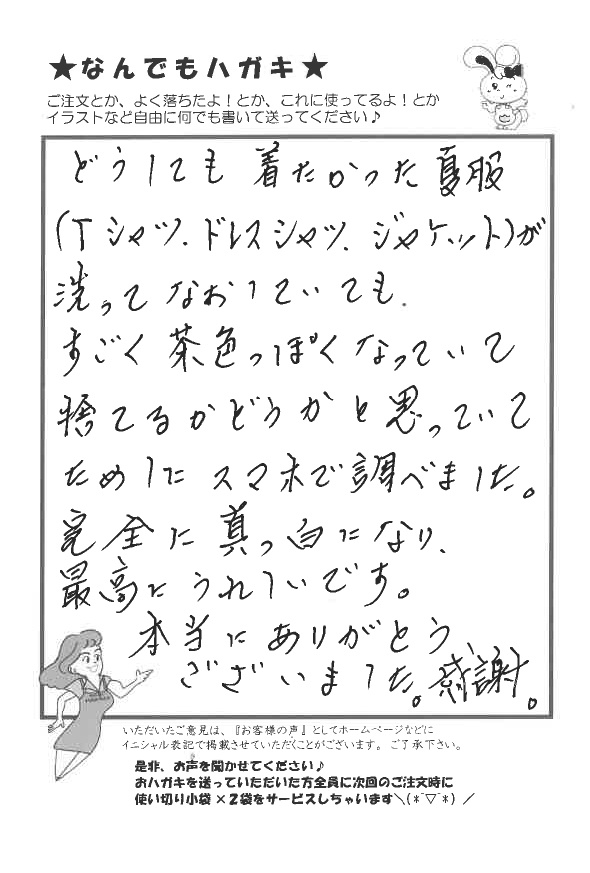 ★なんでもハガキ★
ご注文とか、よく落ちたよ！とか、これに使ってるよ！とか
イラストなど自由に何でも書いて送ってください♪
どうしても着たかった夏服
(Tシャツ、ドレスシャツ、ジャケット)が
洗ってなおしていても、
すごく茶色っぽくなっていて
捨てるかどうかと思っていて
ためしにスマホで調べました。
完全に真っ白になり、
最高にうれしいです。
本当にありがとう
ございました。感謝。
いただいたご意見は、『お客様の声』としてホームページなどに
イニシャル表記で掲載させていただくことがございます。ご了承下さい。
是非、お声を聞かせてください♪
おハガキを送っていただいた方全員に次回のご注文時に
使い切り小袋×2袋をサービスしちゃいます＼(*ˊ▽ˋ*)／